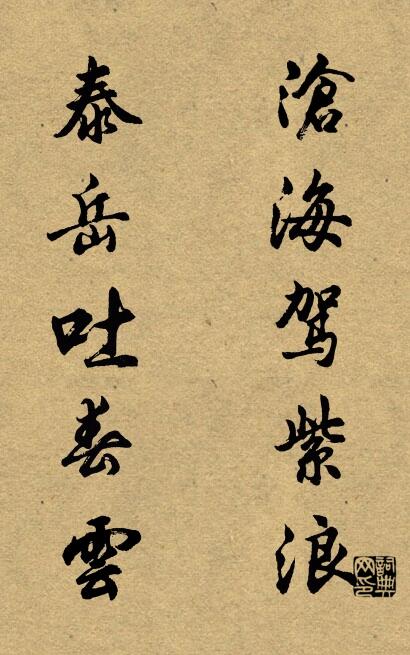 滄海駕紫浪
泰岳吐春雲
詞典网印